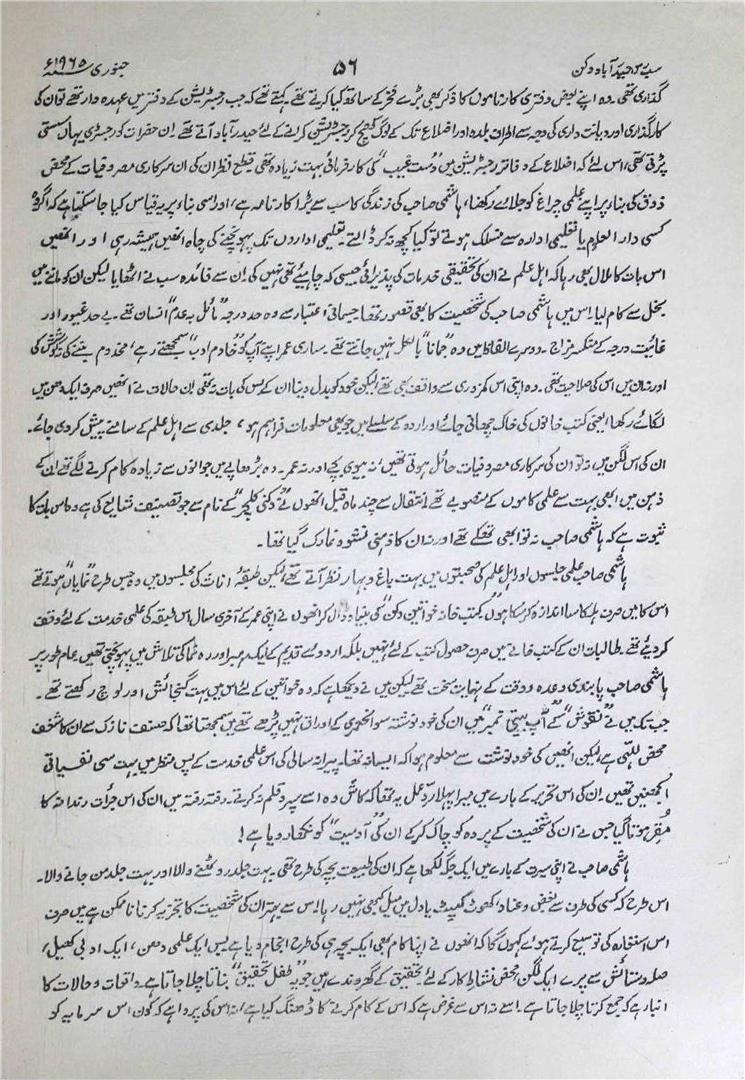 سب رس حیدرآباد دکن ۵۶ جنوری ۱۹۶۵ء
گذاری تھی۔ وہ اپنے بعض دفتری کارناموں کا ذکر بھی بڑے فخر کے ساتھ کیا کرتے تھے۔ کہتے تھے کہ جب رجسٹریشن کے دفتر میں عہدہ دار تھے تو ان کی
کارگذاری اور دیانت داری کی وجہ سے اطراف بلدہ اور اضلاع تک کے لوگ کھنچ کر رجسٹریشن کرانے کے لئے حیدرآباد آتے تھے۔ ان حضرات کو رجسٹری یہاں سستی
پڑتی تھی، اس لئے کہ اضلاع کے دفاتر رجسٹریشن میں "دست غیب" کی کارفرمائی بہت زیادہ تھی۔ قطع نظر ان کی ان سرکاری مصروفیات کے محض
ذوق کی بناء پر اپنے علمی چراغ کو جلائے رکھنا، ہاشمی صاحب کی زندگی کا سب سے بڑا کارنامہ ہے، اور اسی بناء پر یہ قیاس کیا جا سکتا ہے کہ اگر وہ
کسی دارالعلوم یا تعلیمی ادارہ سے منسلک ہوتے تو کیا کچھ نہ کر ڈالتے۔ تعلیمی اداروں تک پہونچنے کی چاہ انھیں ہمیشہ رہی اور انھیں
اس بات کا ملال بھی رہا کہ اہل علم نے ان کی تحقیقی خدمات کی پذیرائی جیسی کہ چاہیئے تھی نہیں کی۔ ان سے فائدہ سب نے اٹھایا لیکن ان کو ماننے میں
بخل سے کام لیا۔ اس میں ہاشمی صاحب کی شخصیت کا بھی قصور تھا۔ جسمانی اعتبار سے وہ حد درجہ "مائل بہ عدم" انسان تھے۔ بے حد غیور اور
غائیت درجہ کے منکسر مزاج۔ دوسرے الفاظ میں وہ "جمانا" بالکل نہیں جانتے تھے۔ ساری عمر اپنے آپ کو "خادم ادب" سمجھتے رہے، مخدوم بننے کی نہ کوشش کی
اور نہ ان میں اس کی صلاحیت تھی۔ وہ اپنی اس کمزوری سے واقف بھی تھے لیکن خود کو بدل دینا ان کے بس کی بات نہ تھی۔ ان حالات نے انھیں صرف ایک دھن میں
لگائے رکھا، یعنی کتب خانوں کی خاک چھانی جائے اور اردو کے سلسلے میں جو بھی معلومات فراہم ہو، جلدی سے اہل علم کے سامنے پیش کر دی جائے۔
ان کی اس لگن میں نہ تو ان کی سرکاری مصروفیات حائل ہوتی تھیں، نہ بیوی بچے اور نہ عمر۔ وہ بڑھاپے میں جوانوں سے زیادہ کام کرنے لگے تھے ان کے
ذہن میں ابھی بہت سے علمی کاموں کے منصوبے تھے۔ انتقال سے چند ماہ قبل انھوں نے "دکنی کلچر" کے نام سے جو تصنیف شایع کی ہے وہ اس بات کا
ثبوت ہے کہ ہاشمی صاحب نہ تو ابھی تھکے تھے اور نہ ان کا ذہنی نشوونما رک گیا تھا۔
ہاشمی صاحب علمی جلسوں اور اہل علم کی صحبتوں میں بہت باغ و بہار نظر آتے تھے، لیکن طبقۂ اناث کی مجلسوں میں وہ جس طرح "نمایاں" ہوتے تھے
اس کا میں صرف ہلکا سا اندازہ کر سکا ہوں۔ کتب خانہ خواتین دکن" کی بنیاد ڈال کر انھوں نے اپنی عمر کے آخری سال اس طبقہ کی علمی خدمت کے لئے وقف
کر دیئے تھے۔ طالبات ان کے کتب خانے میں صرف حصول کتب کے لئے نہیں بلکہ اردوئے قدیم کے ایک رہبر اور رہ نما کی تلاش میں پہونچتی تھیں۔ عام طور پر
ہاشمی صاحب پابندی وعدہ و وقت کے نہایت سخت تھے لیکن میں نے دیکھا ہے کہ وہ خواتین کے لئے اس میں بہت گنجائش اور لوچ رکھتے تھے۔
جب تک میں نے "نقوش" کے "آپ بیتی نمبر" میں ان کی خود نوشتہ سوانحعمری کے اوراق نہیں پڑھے تھے میں سمجھتا تھا کہ صنف نازک سے ان کا شغف
محض للہی ہے، لیکن انھیں کی خود نوشت سے معلوم ہوا کہ ایسا نہ تھا۔ پیرانہ سالی کی اس علمی خدمت کے پس منظر میں بہت سی نفسیاتی
الجھنیں تھیں۔ ان کی اس تحریر کے بارے میں میرا پہلا ردّ عمل یہ تھا کہ کاش وہ اسے سپرد قلم نہ کرتے۔ رفتہ رفتہ میں ان کی اس جرأت رندانہ کا
مُقِر ہوتا گیا جس نے ان کی شخصیت کے پردہ کو چاک کر کے ان کی "آدمیت" کو نکھار دیا ہے!
ہاشمی صاحب نے اپنی سیرت کے بارے میں ایک جگہ لکھا ہے کہ ان کی طبیعت بچہ کی طرح تھی۔ بہت جلد روٹھنے والا اور بہت جلد من جانے والا۔
اس طرح کہ کسی کی طرف سے بغض و عناد، کھوٹ کپٹ یا دل میں میل کبھی نہیں رہا۔ اس سے بہتر ان کی شخصیت کا تجزیہ کرنا ناممکن ہے میں صرف
اس استعارہ کی توسیع کرتے ہوئے کہوں گا کہ انھوں نے اپنا کام بھی ایک بچہ ہی کی طرح انجام دیا ہے بس ایک علمی دھن، ایک ادبی کھیل،
صلہ و ستائش سے پرے ایک لگن، محض نشاطِ کار کے لئے تحقیق کے گھروندے ہیں جو یہ "طفل تحقیق" بناتا چلا جاتا ہے۔ واقعات و حالات کا
انبار ہے کہ جمع کرتا چلا جاتا ہے۔ اسے نہ اس سے غرض ہے کہ اس کے کام کرنے کا ڈھنگ کیا ہے، نہ اس کی پروا ہے کہ کون اس سرمایہ کو